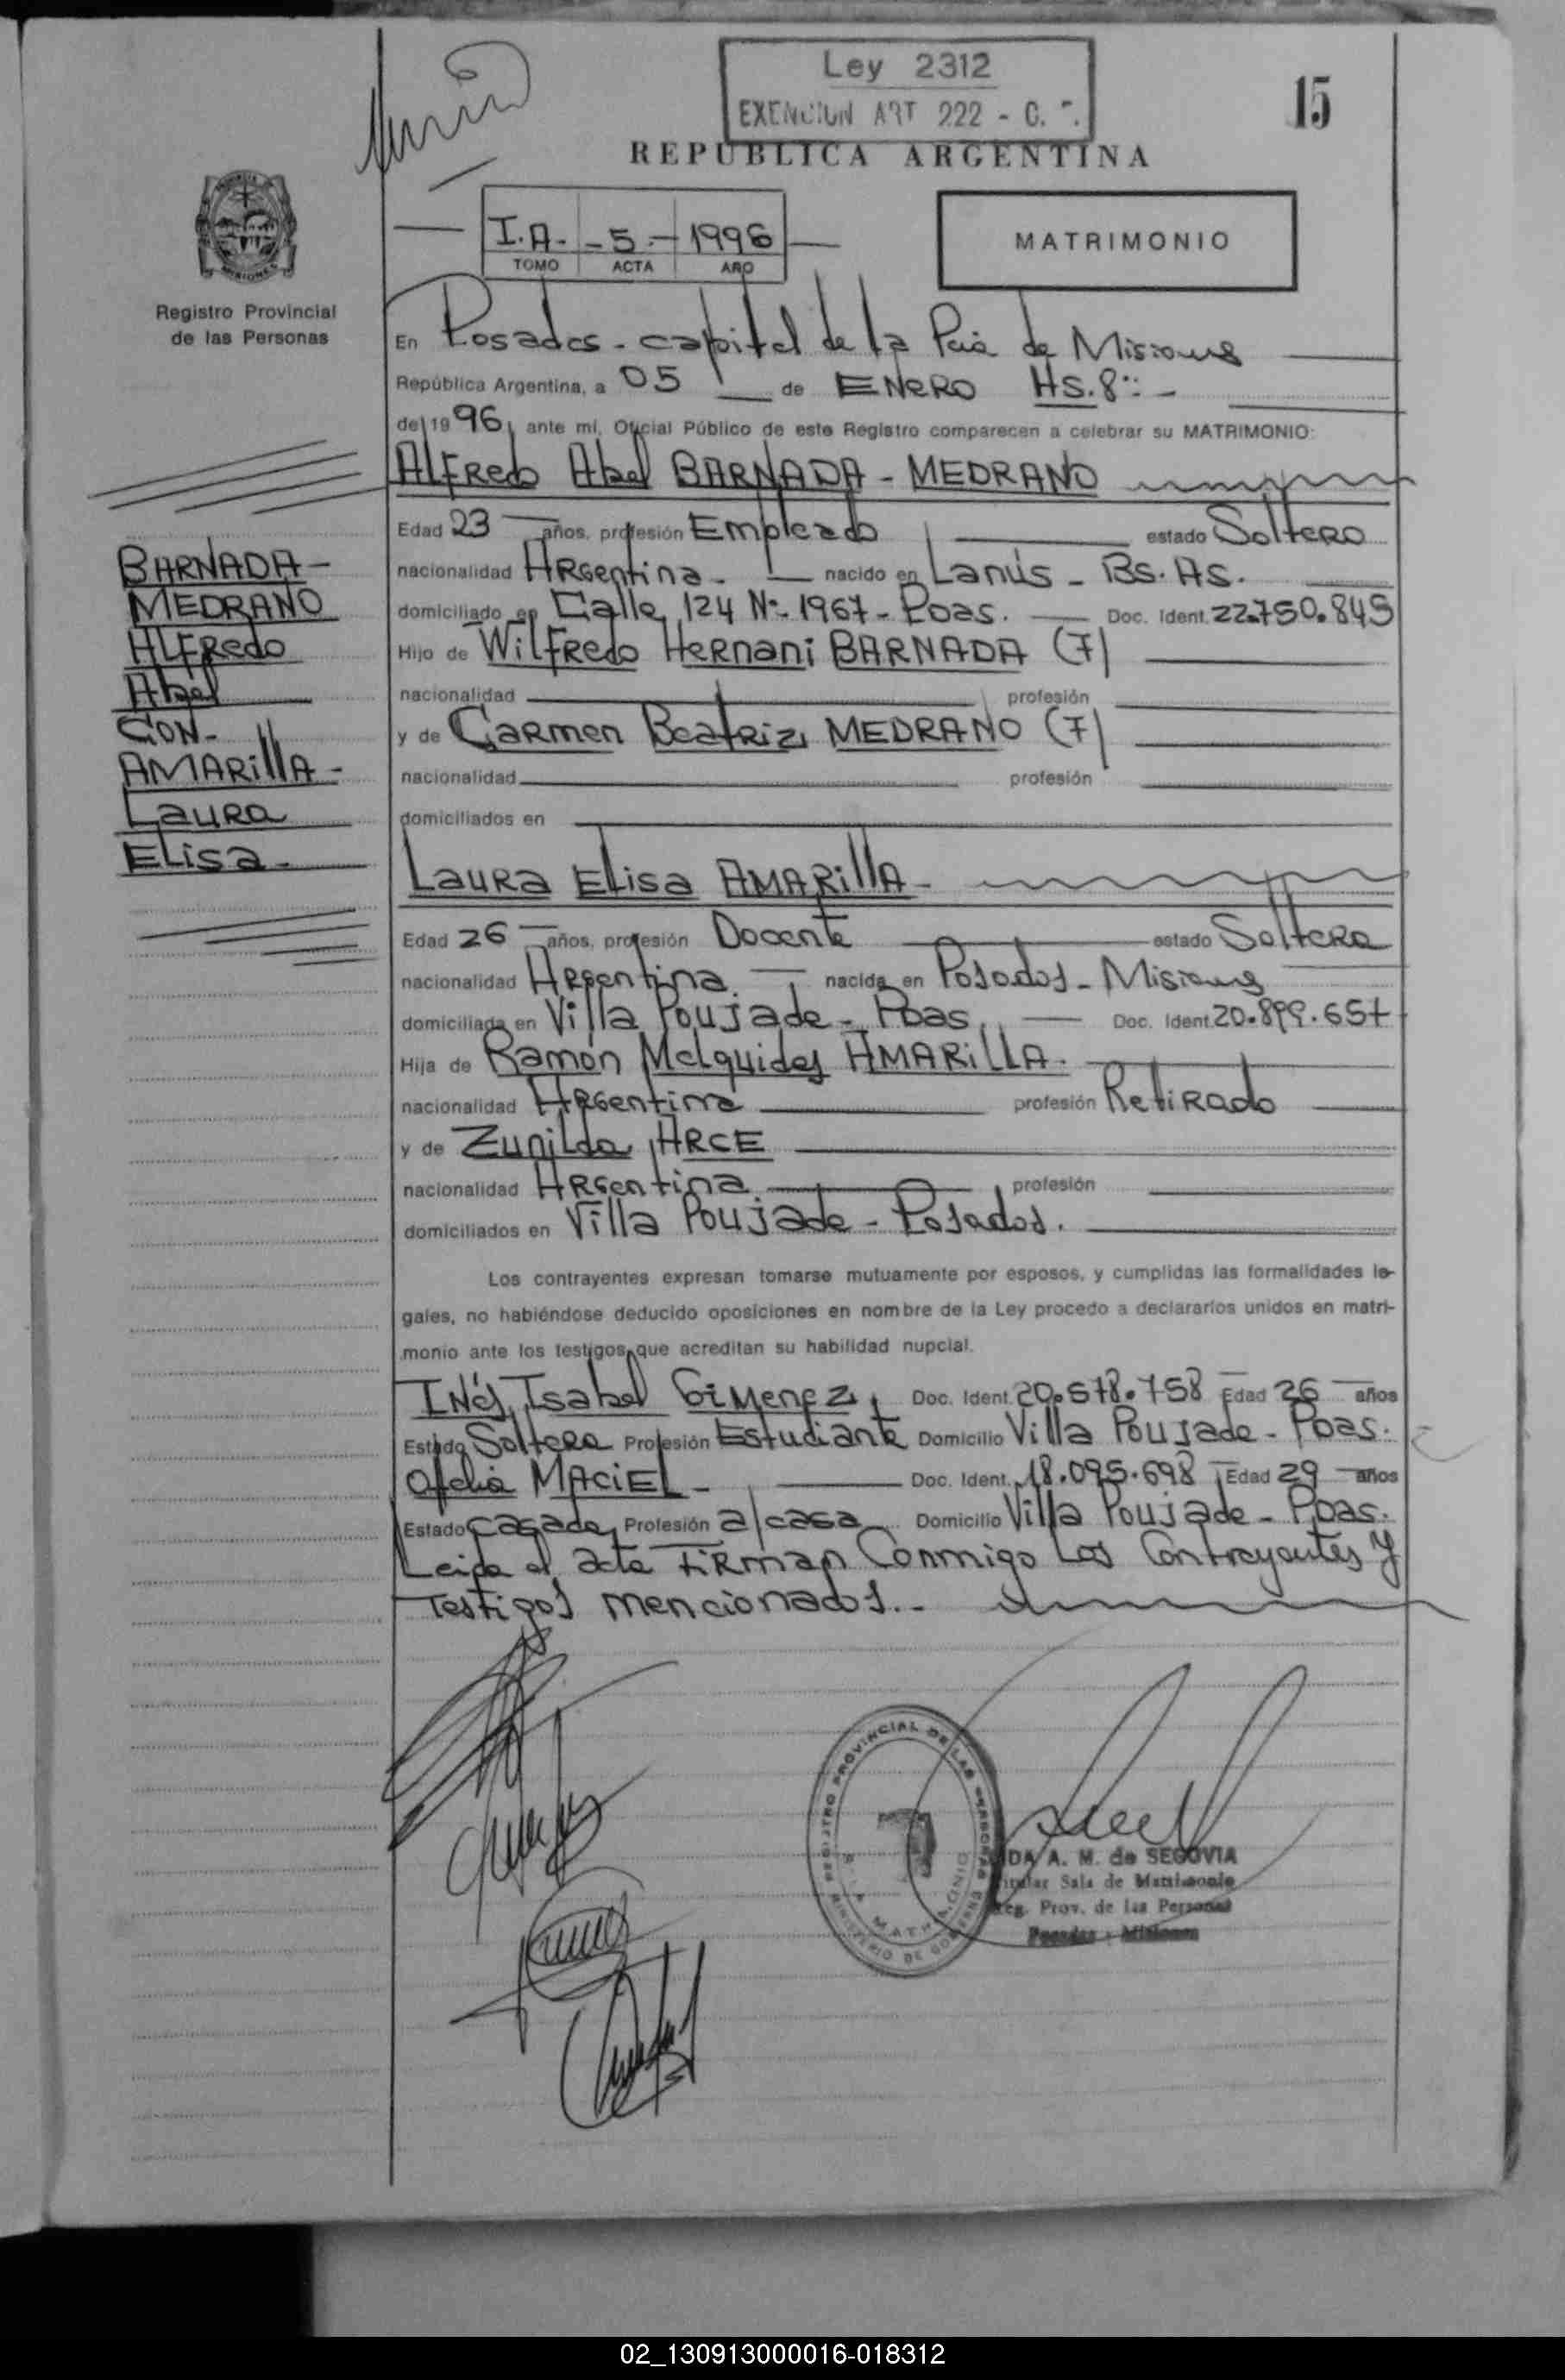 Ley 2312
EXENCION ART 222 - C.
15
REPUBLICA ARGENTINA
I.A. - 5 - 1996
TOMO ACTA AÑO
MATRIMONIO
Registro Provincial
de las Personas
En Posadas - capital de la Pcia de Misiones
República Argentina, a 05 de ENERO HS. 8:
del 19 96, ante mí, Oficial Público de este Registro comparecen a celebrar su MATRIMONIO:
ALFREDO Abel BARNADA - MEDRANO
Edad 23 años, profesión Empleado estado Soltero
nacionalidad Argentina - nacido en Lanús - Bs. As.
domiciliado en Calle 124 Nº 1967 - Poas. Doc. Ident. 22.750.845
Hijo de Wilfredo Hernani BARNADA (7)
nacionalidad profesión
y de Carmen Beatriz MEDRANO (7)
nacionalidad profesión
domiciliados en
BARNADA -
MEDRANO
ALFREDO
Abel
CON -
AMARILLA -
Laura
Elisa -
Laura Elisa AMARILLA -
Edad 26 años, profesión Docente estado Soltera
nacionalidad Argentina. nacida en Posadas - Misiones
domiciliada en Villa Poujade - Poas. Doc. Ident. 20.899.657
Hija de Ramón Melquides AMARILLA.
nacionalidad Argentina profesión Retirado
y de Zunilda ARCE
nacionalidad Argentina profesión
domiciliados en Villa Poujade - Posadas.
Los contrayentes expresan tomarse mutuamente por esposos, y cumplidas las formalidades le-
gales, no habiéndose deducido oposiciones en nombre de la Ley procedo a declararlos unidos en matri-
monio ante los testigos que acreditan su habilidad nupcial.
Inés Isabel Gimenez, Doc. Ident. 20.578.758 Edad 26 años
Estado Soltera Profesión Estudiante Domicilio Villa Poujade - Poas.
Ofelia MACIEL - Doc. Ident. 18.095.698 Edad 29 años
Estado Casada Profesión a/casa Domicilio Villa Poujade - Poas.
Leida el acta Firman Conmigo Los Contrayentes y
Testigos mencionados.-
REGISTRO PROVINCIAL DE LAS PERSONAS
MINISTERIO DE GOBIERNO
DA A. M. de SEGOVIA
Titular Sala de Matrimonio
Reg. Prov. de las Personas
Posadas - Misiones
02_130913000016-018312